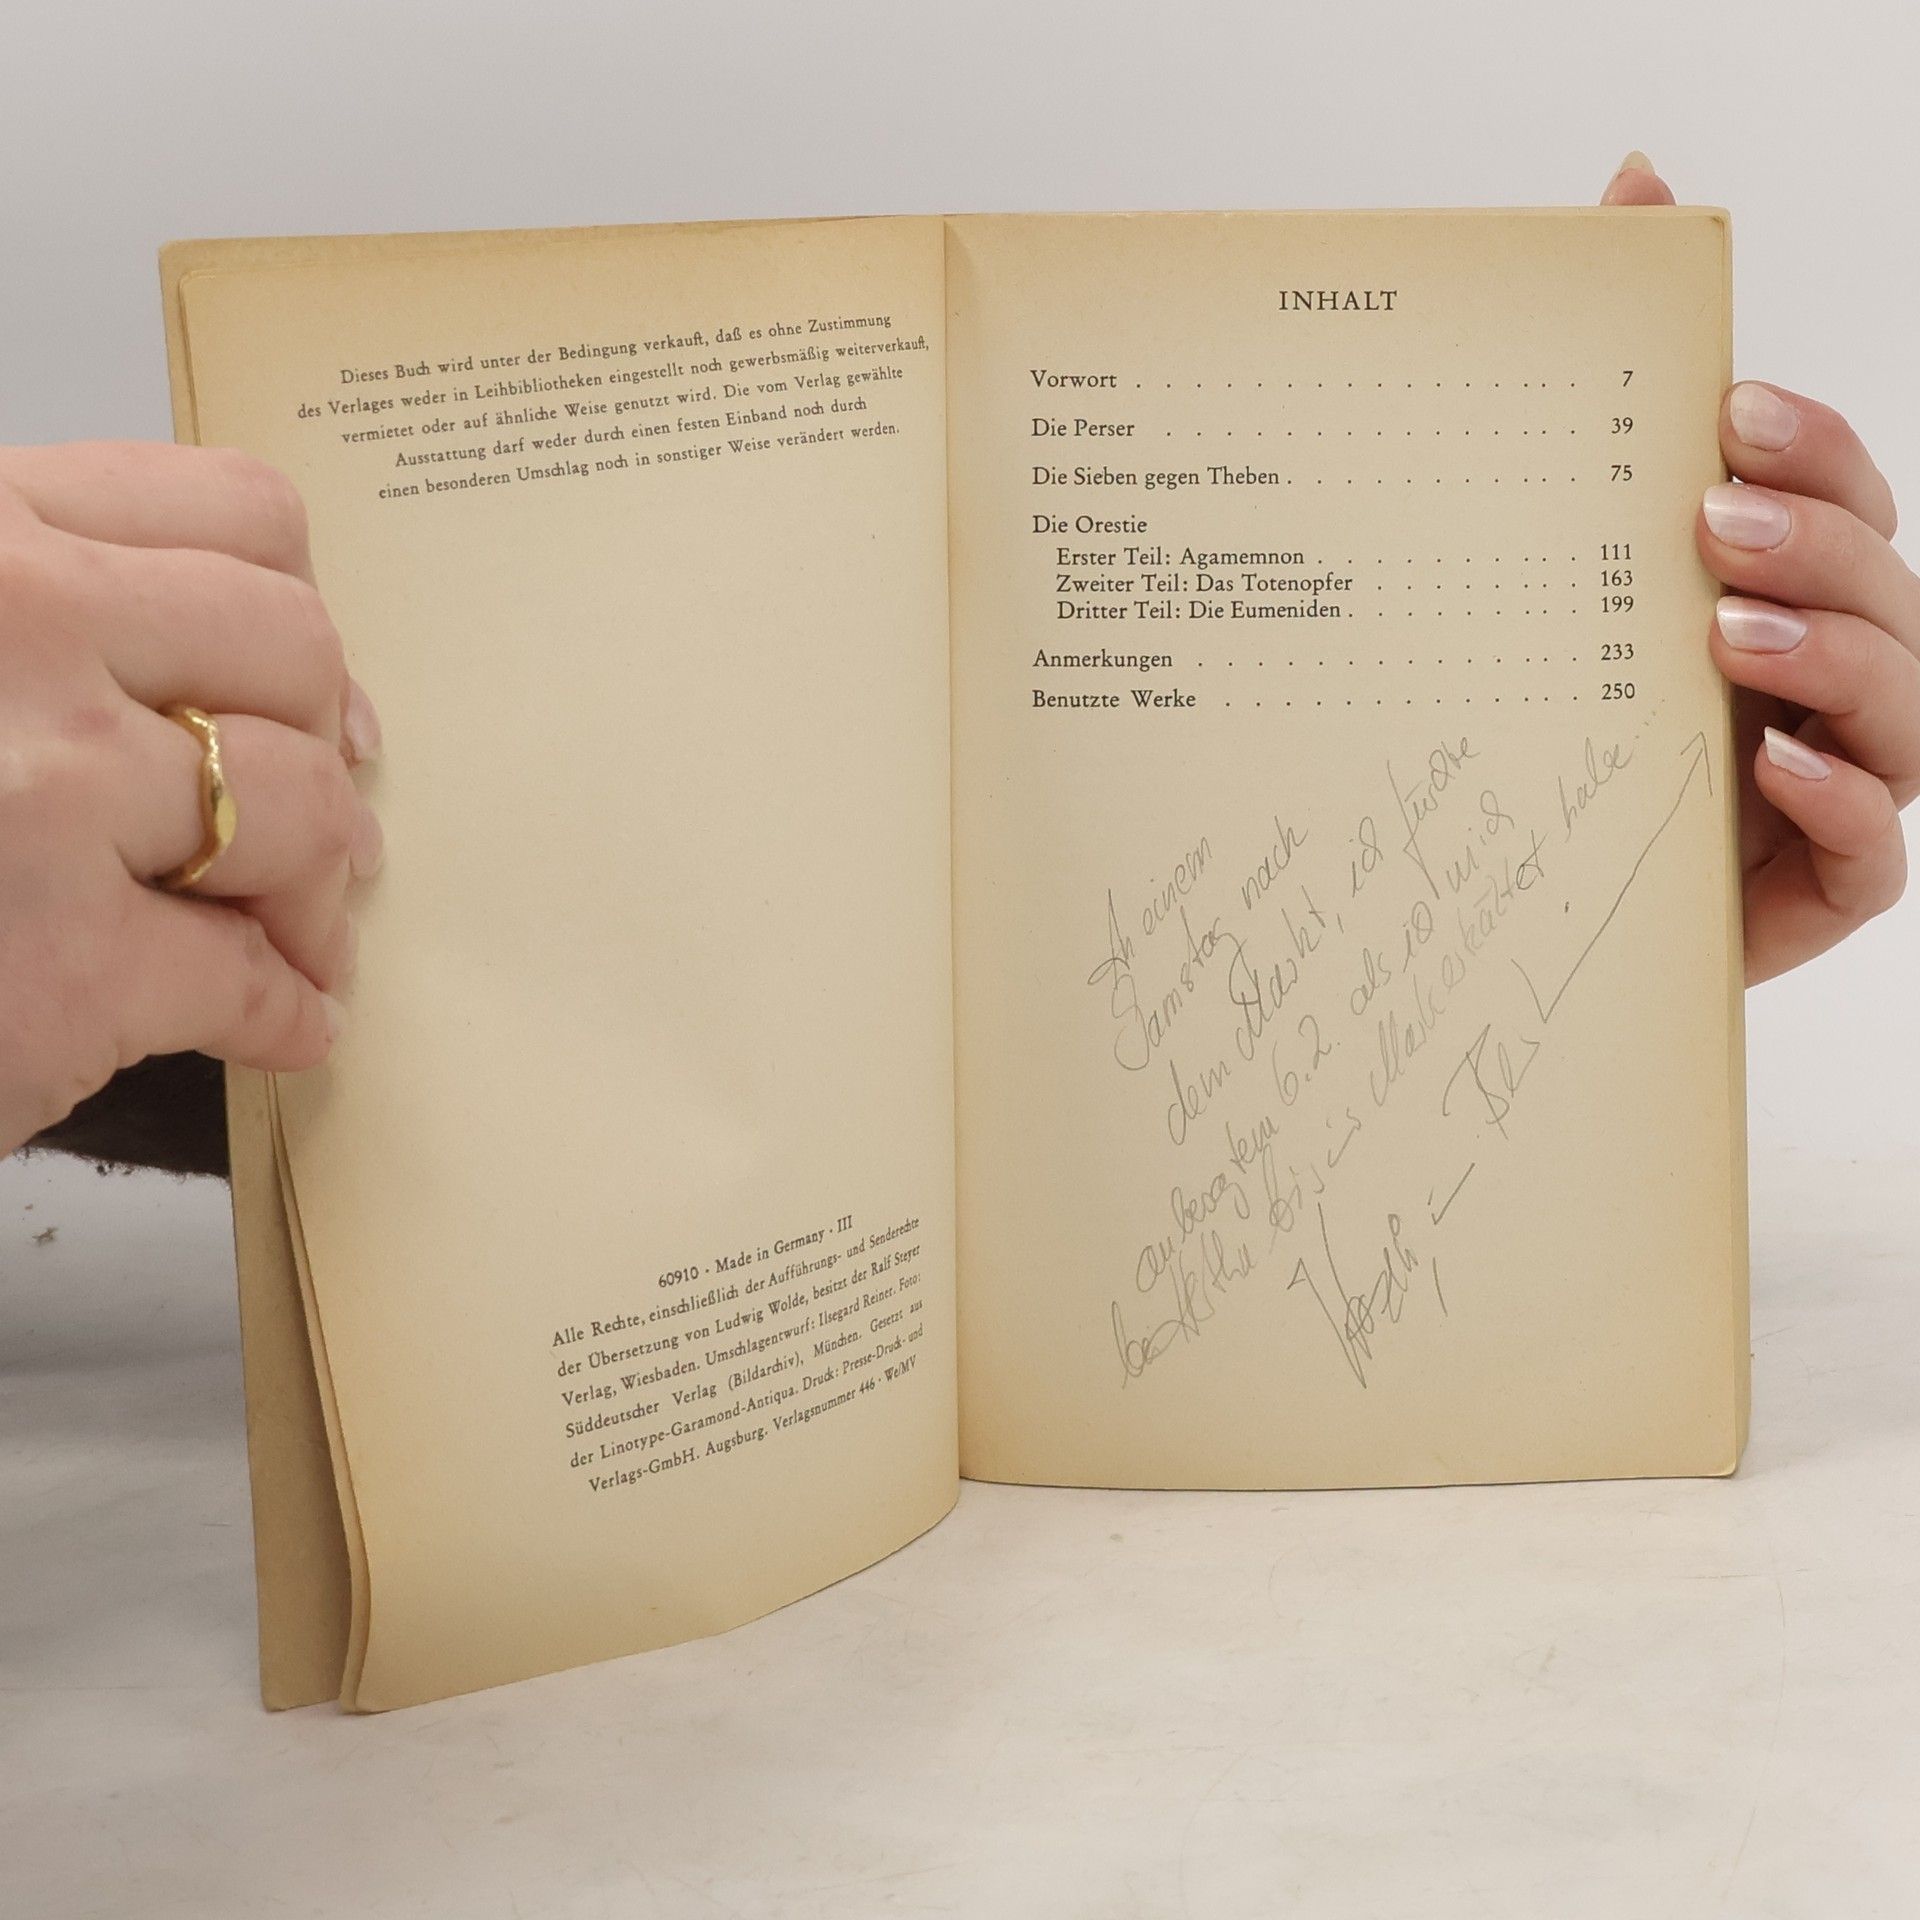 Dieses Buch wird unter der Bedingung verkauft, daß es ohne Zustimmung
des Verlages weder in Leihbibliotheken eingestellt noch gewerbsmäßig weiterverkauft,
vermietet oder auf ähnliche Weise genutzt wird. Die vom Verlag gewählte
Ausstattung darf weder durch einen festen Einband noch durch
einen besonderen Umschlag noch in sonstiger Weise verändert werden.
60910 · Made in Germany · III
Alle Rechte, einschließlich der Aufführungs- und Senderechte
der Übersetzung von Ludwig Wolde, besitzt der Ralf Steyer
Verlag, Wiesbaden. Umschlagentwurf: Ilsegard Reiner. Foto:
Süddeutscher Verlag (Bildarchiv), München. Gesetzt aus
der Linotype-Garamond-Antiqua. Druck: Presse-Druck- und
Verlags-GmbH. Augsburg. Verlagsnummer 446 · We/MV
INHALT
Vorwort . . . . . . . . . . . . . . . 7
Die Perser . . . . . . . . . . . . . . 39
Die Sieben gegen Theben . . . . . . . . . . 75
Die Orestie
Erster Teil: Agamemnon . . . . . . . . . 111
Zweiter Teil: Das Totenopfer . . . . . . . 163
Dritter Teil: Die Eumeniden . . . . . . . . 199
Anmerkungen . . . . . . . . . . . . . 233
Benutzte Werke . . . . . . . . . . . . 250
einem
Samstag nach
dem Markt, ich
6.2. als ich mich
bei bis ins habe